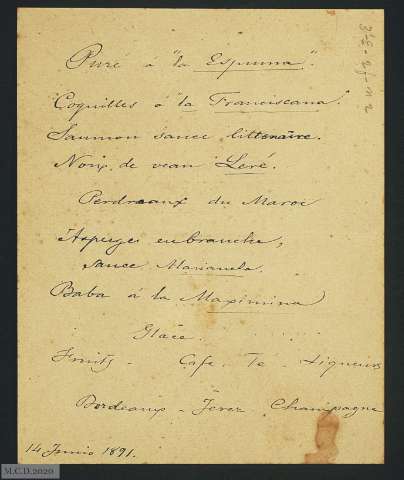 Puré á "la Espuma".
Coquilles á "la Franciscana".
Saumon sauce littenaire.
Noix de veau Leré.
Perdreaux du Maroc
Asperges en branche,
sauce Marianela.
Baba á la Maximina
Glace.
Fruits - Cafe - Té - Liqueurs
Bordeaux - Jerez - Champagne
14 Junio 1891.
M.C.D.2020